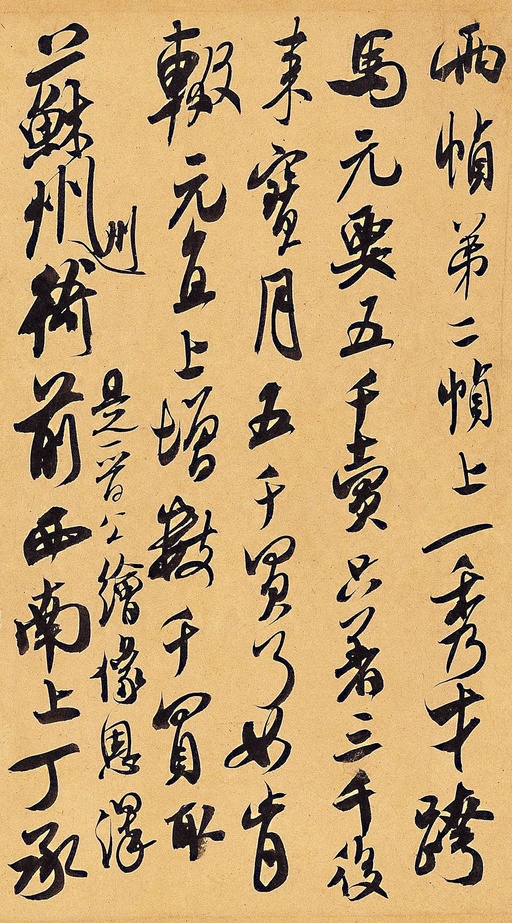 兩幀第二幀上一秀才跨
馬元要五千賣只著三千後
来寶月五千買了如肯
輟元直上增數千買取
蘇州州衙前西南上丁承
是晉公繪像恩澤